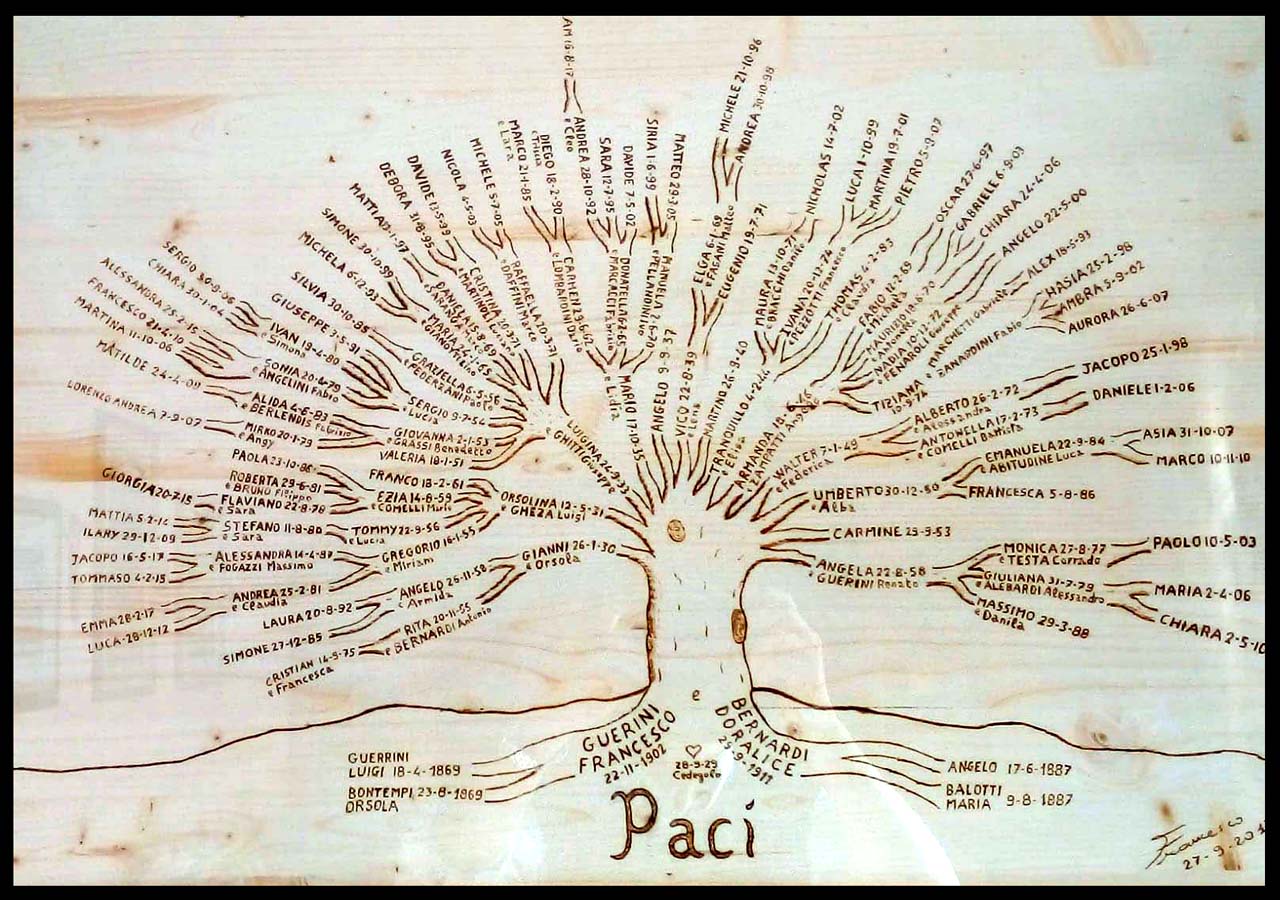 AM 16-8-17
ANDREA 28-10-92
e Cleo
SARA 12-7-95
DAVIDE 7-5-02
SIRIA 1-6-99
MATTEO
MICHELE 21-10-96
ANDREA 30-10-98
NICHOLAS 14-7-02
LUCA 1-10-99
MARTINA 19-7-01
PIETRO 5-9-07
OSCAR 27-6-97
GABRIELE 6-9-03
CHIARA 24-4-06
ANGELO 22-5-00
ALEX 18-5-93
HASIA 25-2-98
AMBRA 5-9-02
AURORA 26-6-07
DIEGO 18-2-90
e Tricia
MARCO 21-1-85
e Lara
MICHELE 5-7-05
NICOLA 4-5-03
DAVIDE 13-5-99
DEBORA 31-8-95
MATTIA
SIMONE 30-10-99
MICHELA 6-12-93
SILVIA 30-10-85
GIUSEPPE 3-5-81
SERGIO 30-8-06
CHIARA 30-1-04
ALESSANDRA 25-2-15
FRANCESCO 21-4-10
MARTINA 11-10-06
MATILDE 24-4-09
LORENZO ANDREA 7-9-07
IVAN 19-4-80
e Simona
SONIA 20-4-79
e ANGELINI Fabio
ALIDA 4-6-83
e BERLENDIS Fabrizio
MIRKO 20-1-79
e Angy
RAFFAELLA 20-3-71
e DAFFINI Marco
CRISTINA
e MARTINOLI
DANIELA 15-8-69
e SARANGA
MARIA
e GIANOTTI
GRAZIELLA 6-5-56
e FEDERZANI Paolo
SERGIO 9-7-54
e Lucia
GIOVANNA 2-1-53
e GRASSI Benedetto
VALERIA 18-1-51
CARMEN 23-6-62
e LOMBARDINI Dario
DONATELLA
e FRACCACETI Fabrizio
MANUELA
ELGA 6-1-69
e PAGANI Matteo
EUGENIO 19-7-71
MAURA 13-10-71
e BRACCHI Danilo
IVANA 20-12-74
e MEZZOTTI Francesco
THOMAS 4-2-83
e Claudia
FABIO
e Michela
MAURIZIO
NADIA 10-12-72
e FENAROLI Giuseppe
TIZIANA
10-9-74
e MARCHETTI Gabriele
SANARDINI Fabio
LUIGINA 24-9-33
e GHITTI Giuseppe
MARIO 17-10-35
e Lidia
ANGELO 9-9-37
VICO 22-0-39
e Lena
MARTINO 26-9-40
TRANQUILLO 4-2-44
e Elisa
ARMANDA 18-6-46
e ZAMPATTI Angelo
WALTER 7-1-49
e Federica
ALBERTO 26-2-72
e Alessandra
ANTONELLA 17-2-73
e COMELLI Battista
JACOPO 25-1-98
DANIELE 1-2-06
UMBERTO 30-12-50
e Alba
EMANUELA 22-9-84
e ABITUDINE Luca
FRANCESCA 5-8-86
ASIA 31-10-07
MARCO 10-11-10
CARMINE 25-9-53
ANGELA 22-8-58
e GUERINI Renato
MONICA 27-8-77
e TESTA Corrado
GIULIANA 31-7-79
e ALEBARDI Alessandro
MASSIMO 29-3-88
e Danila
PAOLO 10-5-03
MARIA 2-4-06
CHIARA 2-5-10
PAOLA 23-10-86
ROBERTA 29-6-81
e BRUNO Filippo
FLAVIANO 22-8-78
e Sara
GIORGIA 20-7-15
MATTIA 5-2-14
ILARY 29-12-09
STEFANO 11-8-80
e Sara
JACOPO 16-5-17
TOMMASO 4-2-15
ALESSANDRA 14-4-87
e FOGAZZI Massimo
EMMA 28-2-17
LUCA-28-12-12
ANDREA 25-2-81
e Claudia
FRANCO 18-2-61
EZIA 14-8-59
e COMELLI Mario
TOMMY 22-9-56
e Lucia
GREGORIO 16-1-55
e Miriam
ORSOLINA 12-5-31
e GHEZA Luigi
GIANNI 26-1-30
e Orsola
ANGELO 26-11-58
e Armida
LAURA 20-8-92
SIMONE 27-12-85
RITA 20-11-55
e BERNARDI Antonio
CRISTIAN 14-9-75
e Francesca
GUERINI
FRANCESCO
22-11-1902
e
BERNARDI
DORALICE
25-9-1911
28-9-29
Cedegolo
GUERRINI
LUIGI 18-4-1869
BONTEMPI 23-8-1869
ORSOLA
ANGELO 17-6-1887
BALOTTI
MARIA 9-8-1887
Paci
Francesco
27-9-201